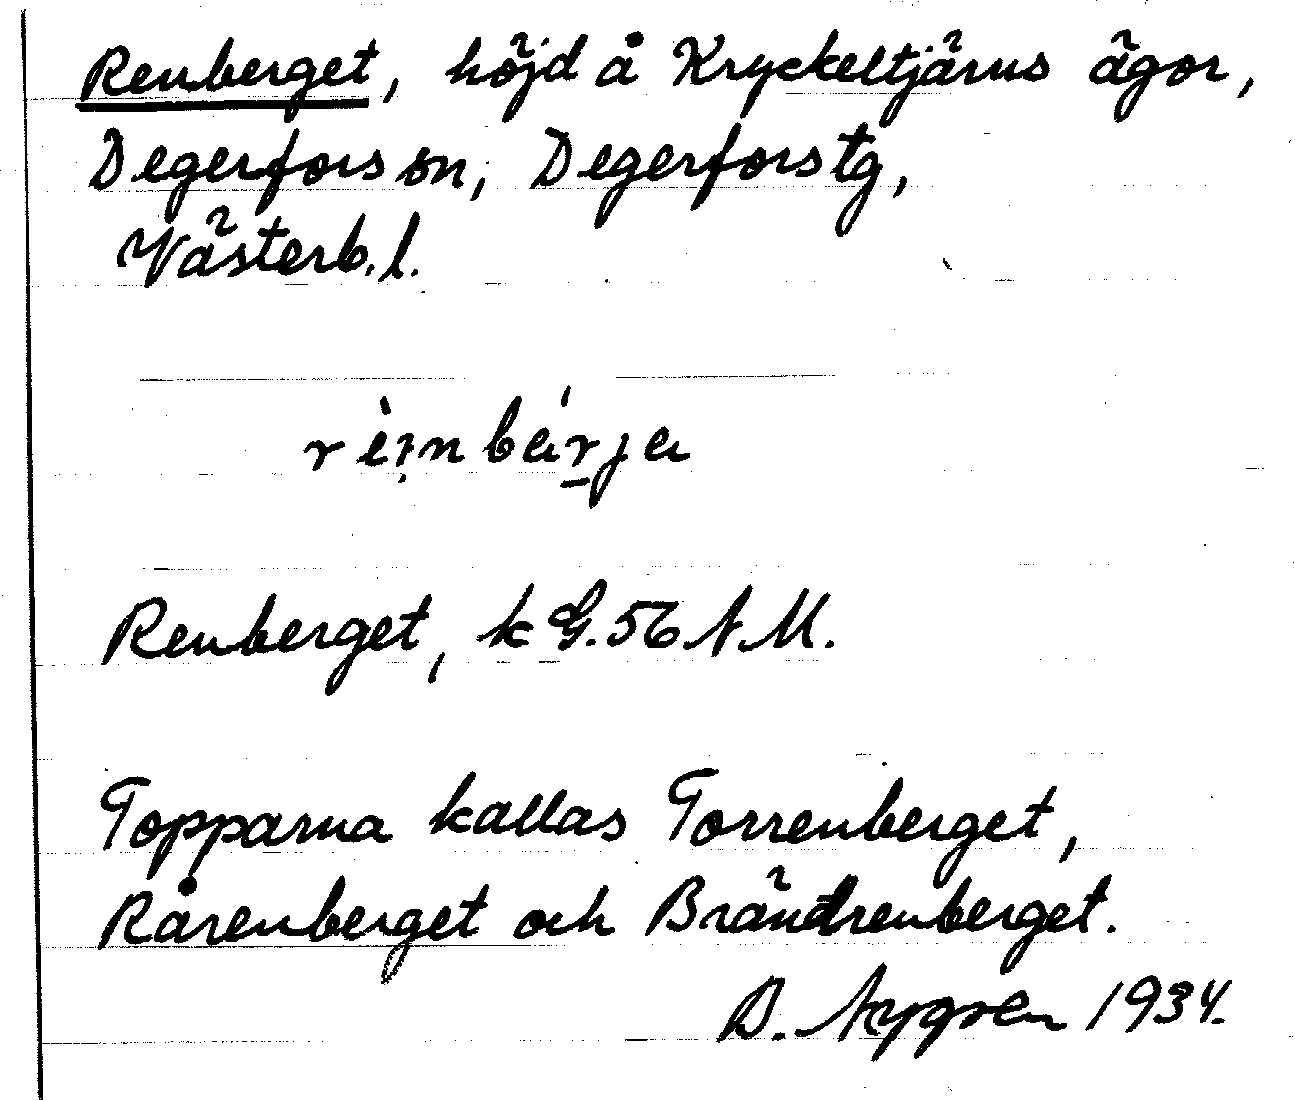 Renberget, höjd å Kryckeltjärns ägor,
Degerfors sn, Degerfors tg,
Västerb. l.
Renberget, k G. 56 N. M.
Topparna kallas Torrenberget,
Rårenberget och Brändrenberget.
B. 1934.